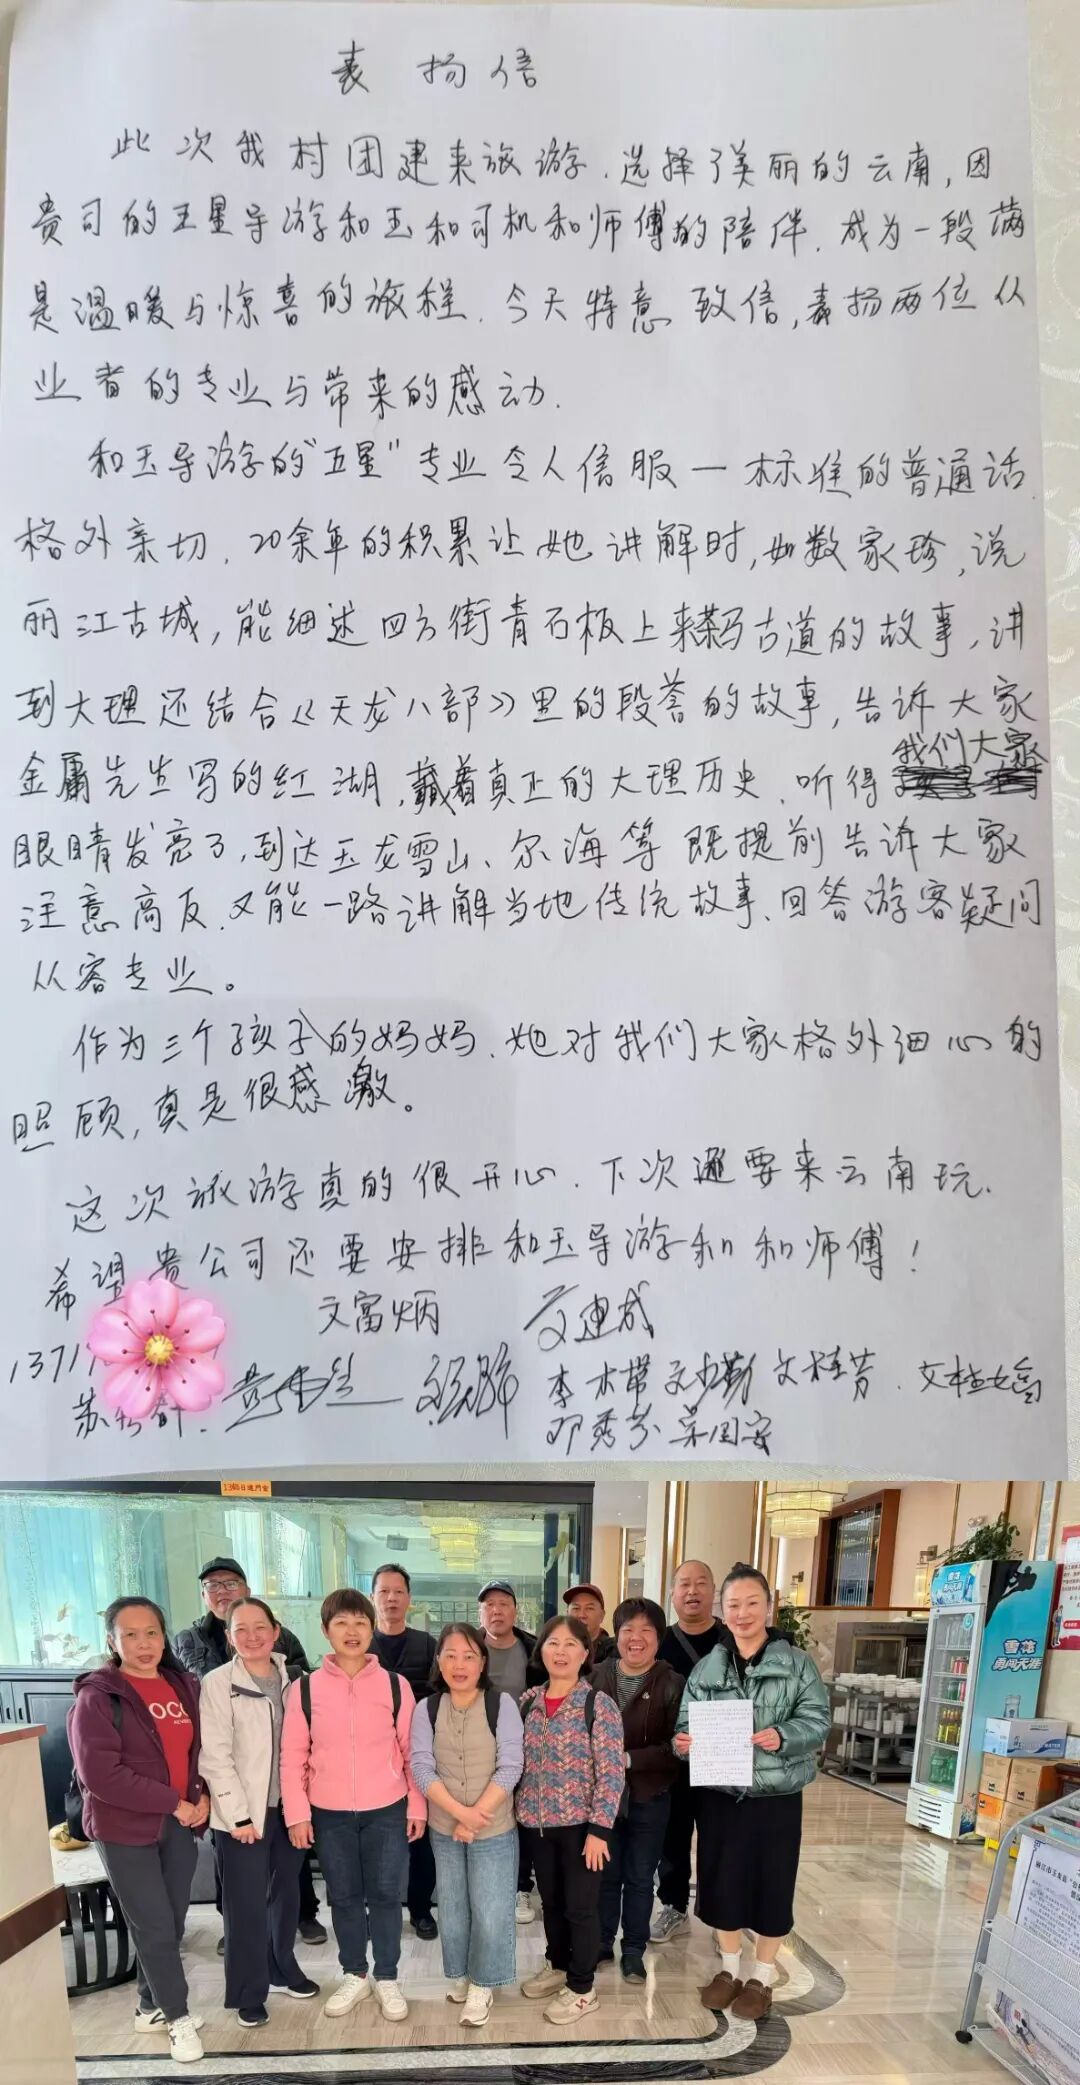 表扬信
此次我村团建来旅游.选择了美丽的云南,因
贵司的五星导游和玉和司机和师傅的陪伴.成为一段满
是温暖与惊喜的旅程.今天特意致信,表扬两位从
业者的专业与带来的感动.
和玉导游的“五星”专业令人信服一标准的普通话
格外亲切.20余年的积累让她讲解时,如数家珍,说
丽江古城,能细述四方街青石板上来茶马古道的故事,讲
到大理还结合《天龙八部》里的段誉的故事,告诉大家
金庸先生写的红湖,藏着真正的大理历史.听得我们大家
眼睛发亮了,到达玉龙雪山、尔海等既提前告诉大家
注意高反.又能一路讲解当地传统故事、回答游客疑问
从容专业。
作为三个孩子的妈妈.她对我们大家格外细心的
照顾,真是很感激。
这次旅游真的很开心.下次还要来云南玩.
希望贵公司还要安排和玉导游和和师傅!
文富炳 文建成
1371
李木带 文桂芳.
邓秀芬
雪花
勇闯天涯